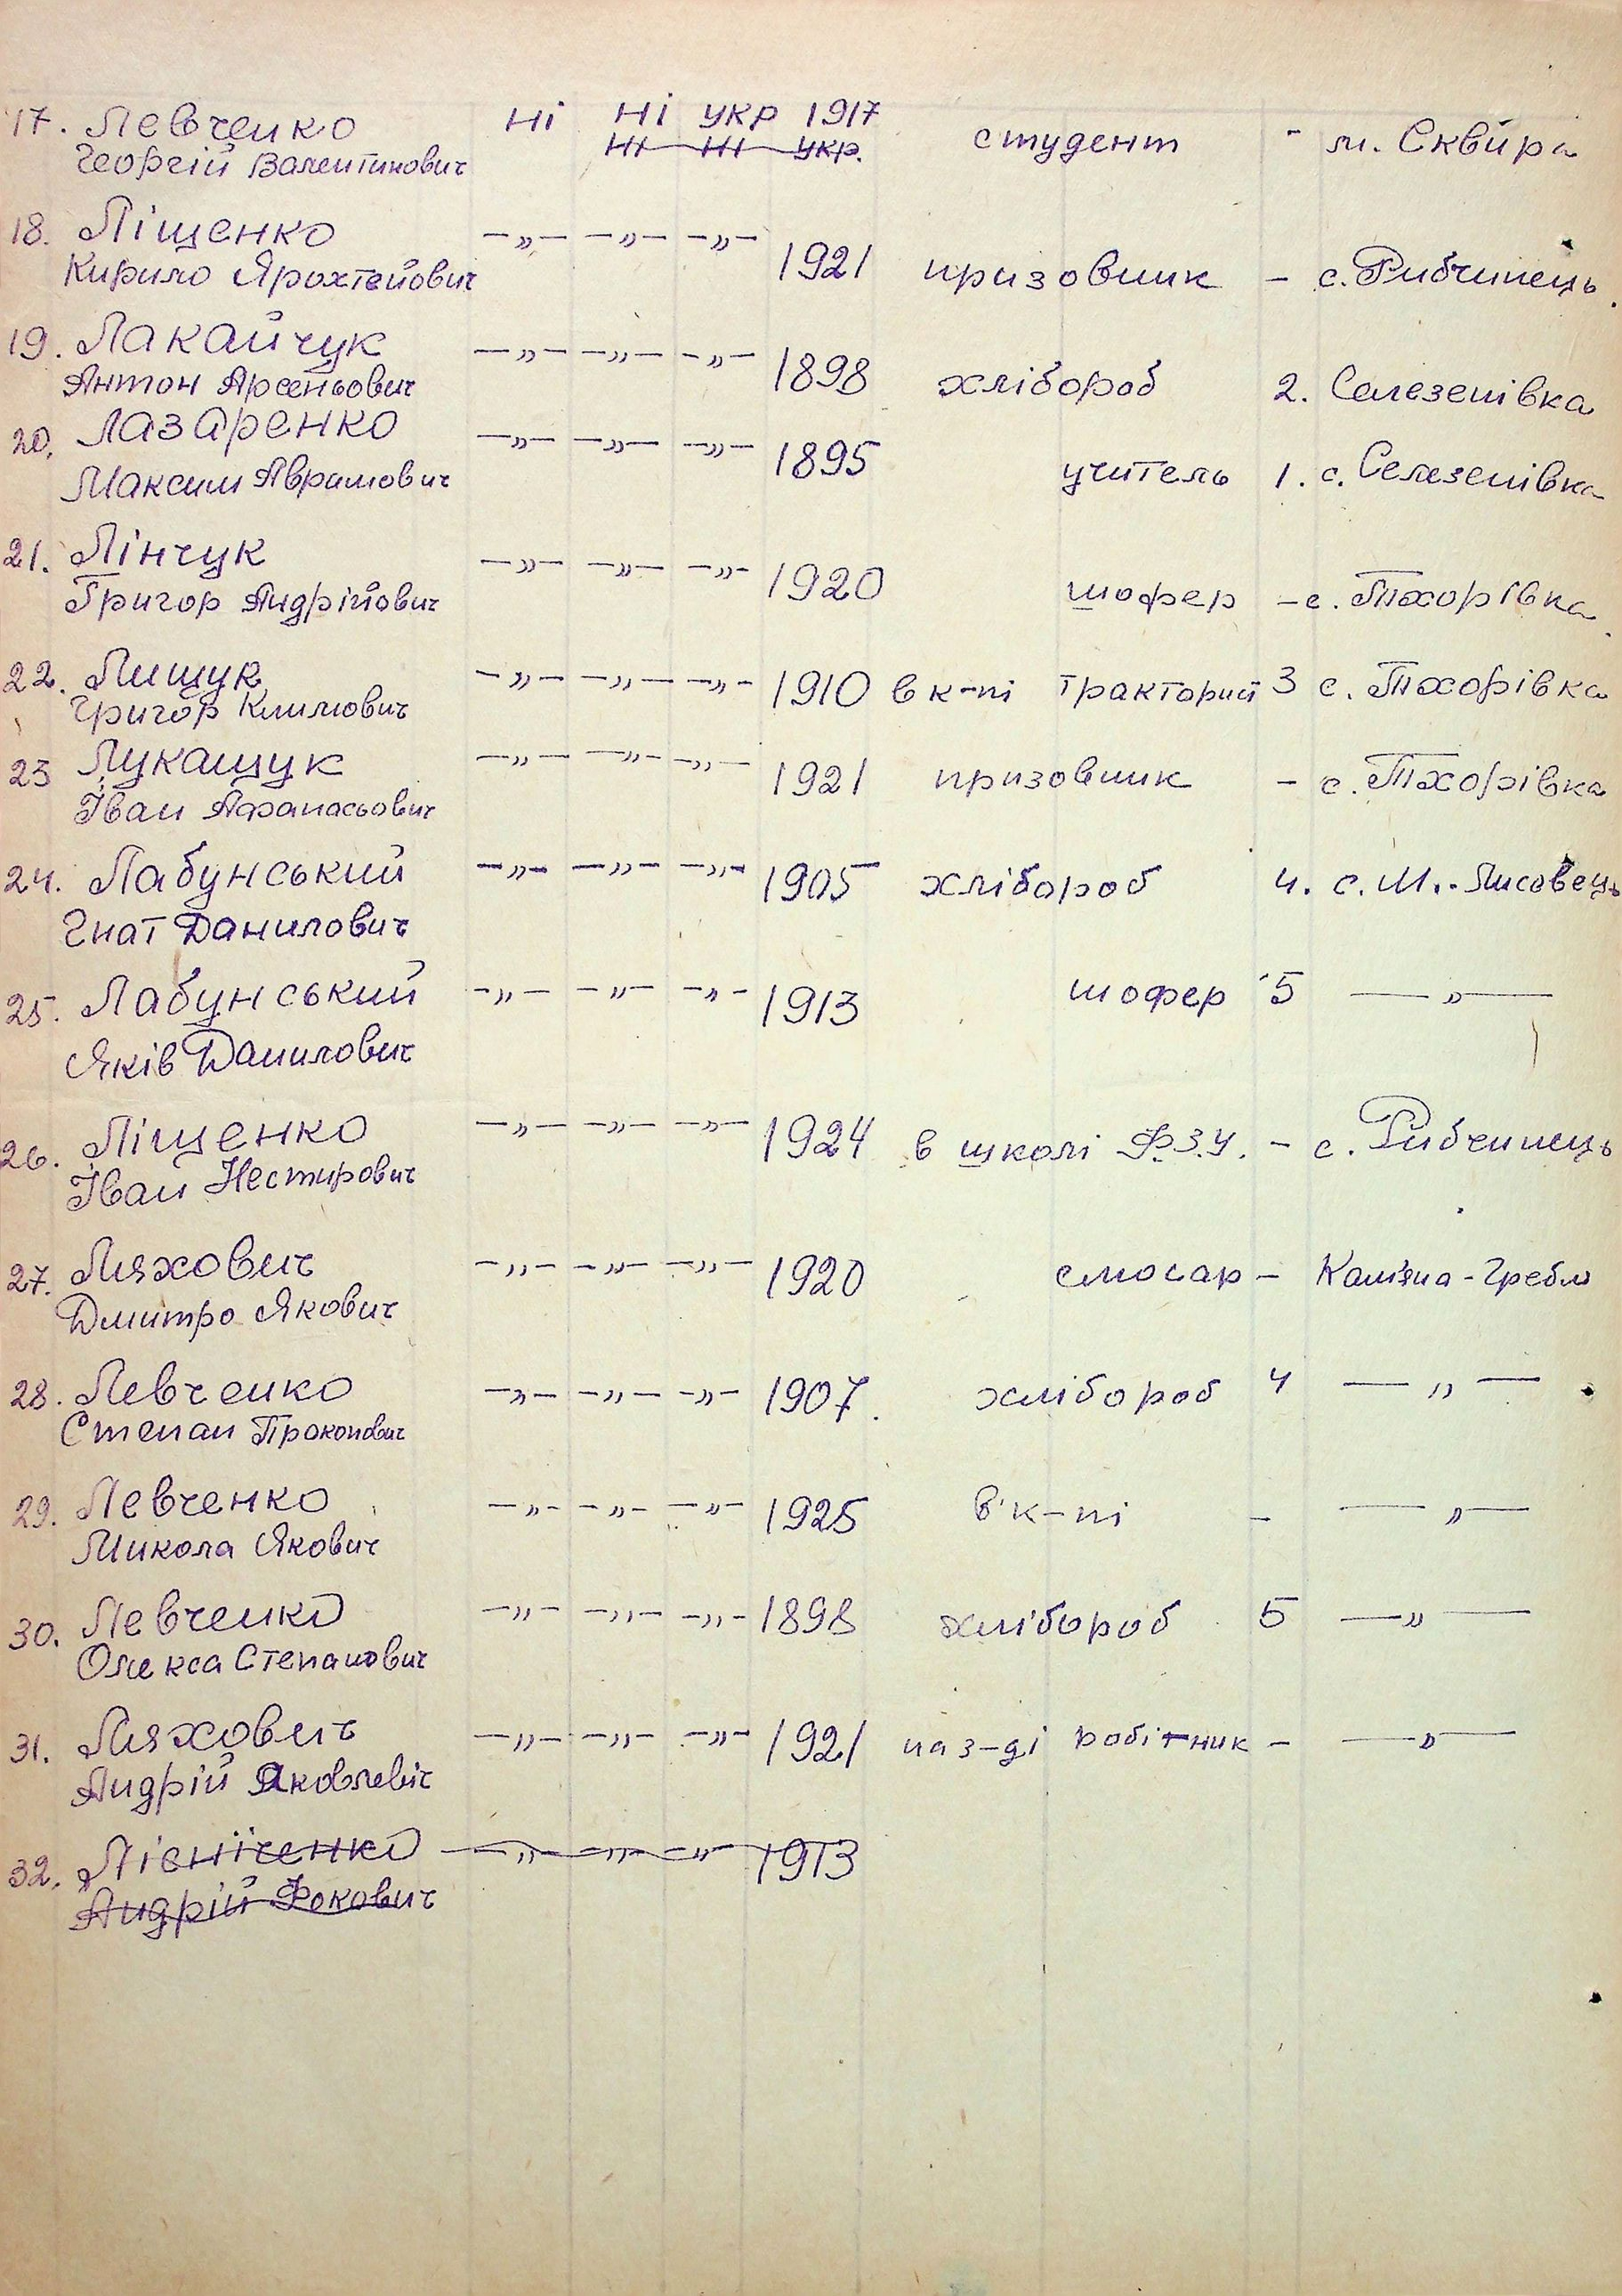 17. Левченко ні ні укр 1917 студент - м. Сквира
Георгій Валентинович ні ні укр.
18. Ліщенко —„— —„— —„— 1921 призовник - с. Рибчинець.
Кирило
19. Лакайчук —„— —„— —„— 1898 хлібороб 2. Селезенівка
Антон Арсеньович
20. Лазаренко —„— —„— —„— 1895 учитель 1. с. Селезенівка
Максим Аврамович
21. Лінчук —„— —„— —„— 1920 шофер - с. Тхорівка.
Григор Андрійович
22. Лищук —„— —„— —„— 1910 в к-пі тракторист 3 с. Тхорівка
Григор Климович
23 Лукащук —„— —„— —„— 1921 призовник - с. Тхорівка
Іван Афанасьович
24. Лабунський —„— —„— —„— 1905 хлібороб 4. с. М.-Лисовець
Гнат Данилович
25. Лабунський —„— —„— —„— 1913 шофер 5 —„—
Яків Данилович
26. Ліщенко —„— —„— —„— 1924 в школі Ф.З.У. - с. Рибчинець
Іван Нестирович
27. Ляхович —„— —„— —„— 1920 слюсар - Кам'яна-Гребля
Дмитро Якович
28. Левченко —„— —„— —„— 1907. хлібороб 4 —„—
Степан Прокопович
29. Левченко —„— —„— —„— 1925 в к-пі - —„—
Микола Якович
30. Левченко —„— —„— —„— 1898 хлібороб 5 —„—
Олекса Степанович
31. Ляхович —„— —„— —„— 1921 на з-ді робітник - —„—
Андрій Яковлевіч
32. Лісніченко —„— —„— —„— 1913
Андрій Фокович